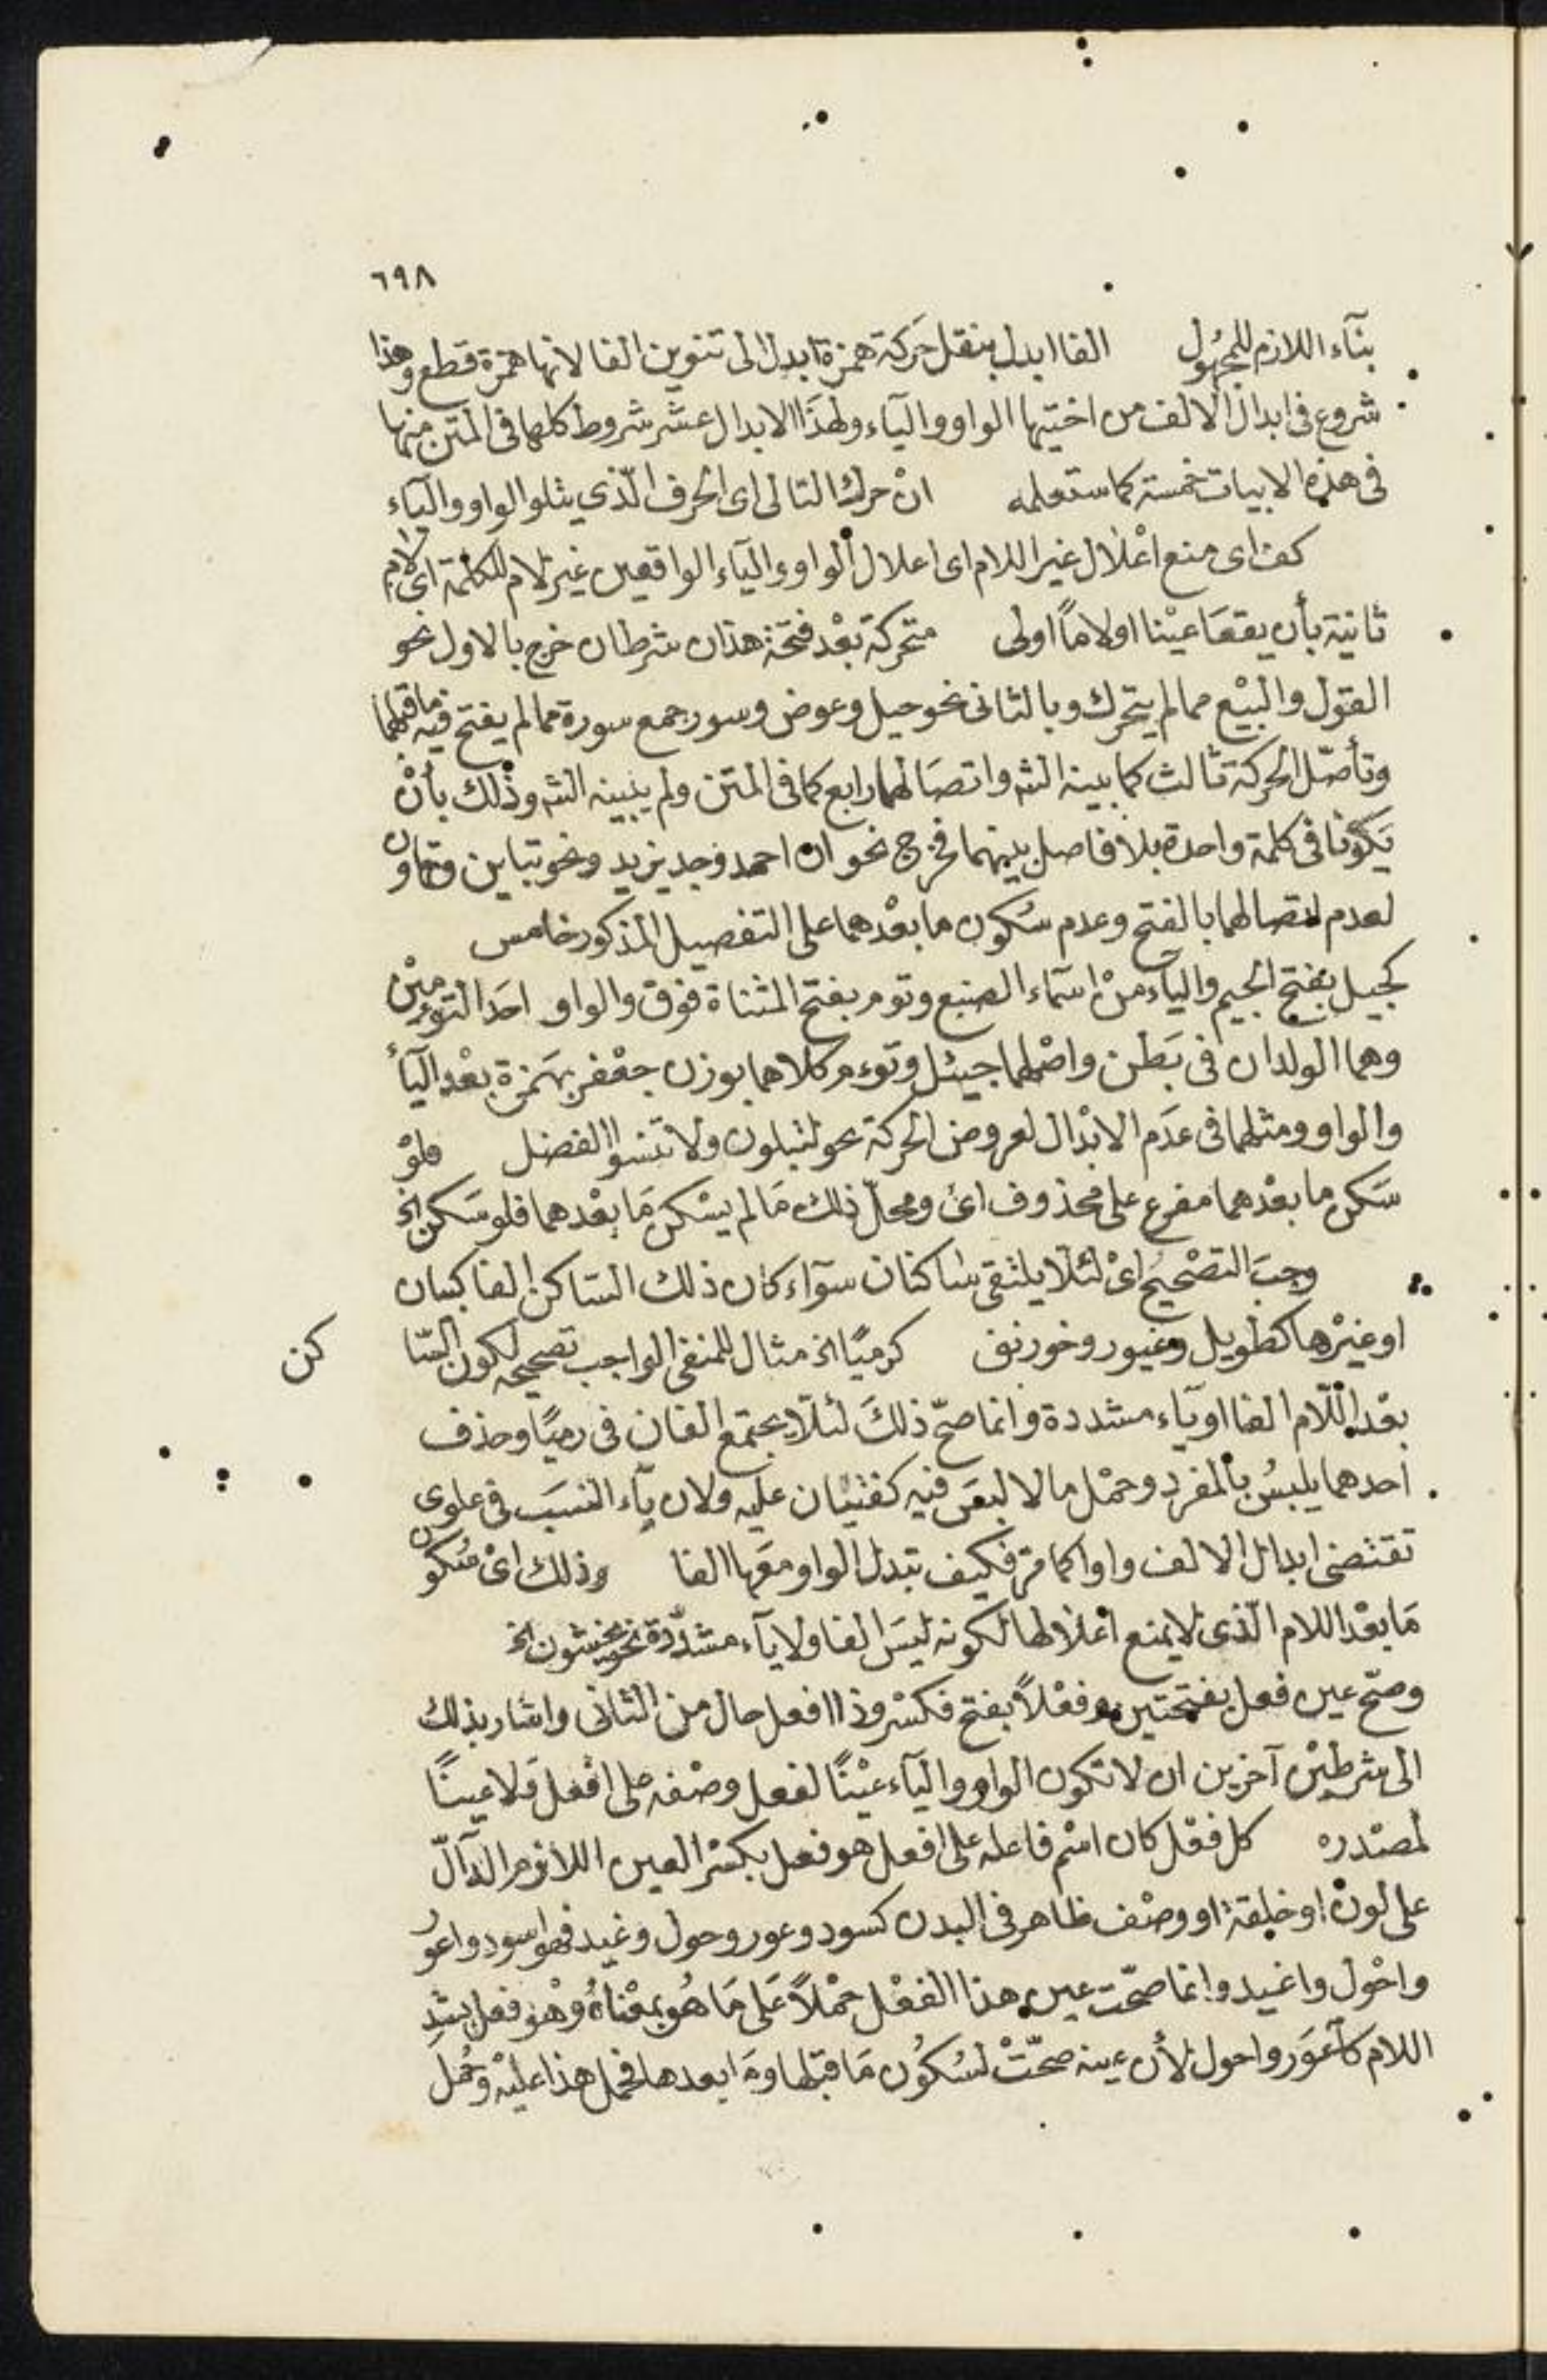 ٦٩٨
بنآء اللازم للمجهُول الفا ابدل بنقل حَركة همزة ابدل الى تنوين الفا لانها همزة قطع وهذا
شروع فى ابدال الالف من اختيها الواو واليآء ولهذَا الابدال عشر شروط كلها فى المتن منها
فى هذه الابيات خمسة كما ستعلمه انْ حرك التالى اى الحرف الّذي يتلو الواو واليآء
كف اى منع اعْلال غير اللام اى اعلال الواو واليآء الواقعين غير لام للكلمة اى لام
ثانية بأن يقعَا عيْنا او لاماً اولى متحركة بعْد فتحة هذان شرطان خرج بالاول نحو
القول والبيْع مما لم يتحرك وبالثانى نحو حيل وعوض وسور جمع سورة مما لم يفتح فيه ما قبلهما
وتأصّل الحركة ثالث كما بينه الشه واتصَالهما رابع كما فى المتن ولم يبينه الشه وذلك بأنْ
يَكُونا فى كلمة واحدة بلا فاصل بينهما فخرج نحو ان احمد وجد يزيد ونحو تباين وتعاون
لعدم اتصالهما بالفتح وعدم سُكون ما بعْدهما على التفصيل المذكور خامس
كجيل بفتح الجيم واليآء منْ اسمآء الضبع وتوم بفتح المثناة فوق والواو احَد التومينْ
وهما الولدان فى بَطن واصْلهما جيئل وتوءم كلاهما بوزن جعْفر بهَمزة بعْد اليآء
والواو ومثلهما فى عدَم الابْدال لعروض الحركة نحو لتبلون ولا تنسوا الفضل فلوْ
سَكن ما بعْدهما مفرع على محذوف اىْ ومحلّ ذلك مَا لم يسْكن مَا بعْدهما فلو سَكن الخ
وجبَ التصْحيحُ اىْ لئلّا يلتقى ساكنان سوآء كان ذلك السّاكن الفا كبيان
او غيْرها كطويل وغيور وخورنق كرميًا الخ مثال للمنفى الواجب تصحيحه لكون السّا
كن
بعْد اللّام الفا او يآء مشددة وانما صحّ ذلكَ لئلّا يجتمع الفان فى رميًا وحذف
احدهما يلبسُ بالمفرد وحمْل ما لا لبس فيه كفتيان عليه ولان يآء النسَب فى علوى
تقتضى ابدال الالف واوا كما مرّ فكيف تبدل الواو معَها الفا وذلك اىْ سُكون
مَا بعْد اللام الّذى لا يمنع اعْلالها لكونه ليسَ الفا ولا يآء مشدّدة نحو يخشون الخ
وصحّ عين فعل بفتحتين وفعْلاً بفتح فكسْر وذا افعل حال من الثانى واشار بذلك
الى شرطيْن آخرين ان لا تكون الواو واليآء عيْنًا لفعل وصْفه على افْعل ولا عينًا
لمصْدره كل فعْل كان اسْم فاعله على افعل هو فعل بكسْر العين اللازم الدآلّ
على لونْ او خلقة او وصْف ظاهر فى البدن كسود وعور وحول وغيد فهو اسود واعور
واحْول واغيد وانما صحّت عين هذا الفعْل حمْلاً عَلى مَا هُو بمعْناهُ وهْو فعل بشدِ
اللام كآعوَر واحول لأن عينه صحّتْ لسُكُون مَا قبْلها ومَا بعدها فحمل هذا عليْه وحُمل